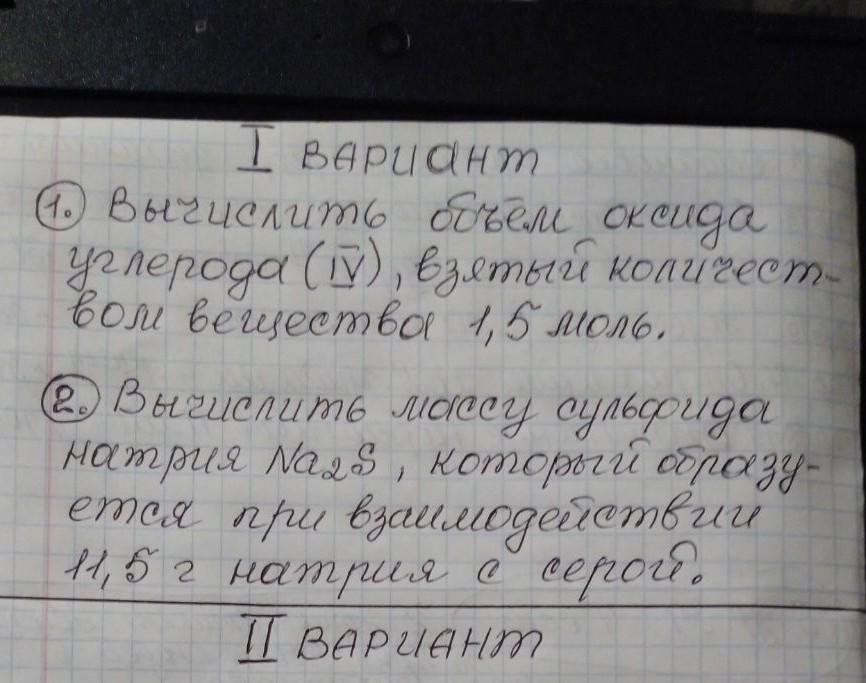 I ВАРИАНТ
1. Вычислить объём оксида
углерода (IV), взятый количест-
вом вещества 1,5 моль.
2. Вычислить массу сульфида
натрия Na₂S, который образу-
ется при взаимодействии
11,5 г натрия с серой.
II ВАРИАНТ